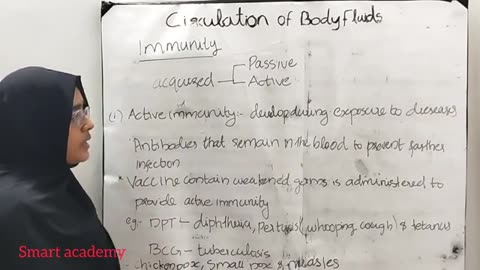 Circulation of Body fluids
Immunity
Passive
acquired
Active
(1) Active immunity:- develop during exposure to diseases
Antibodies that remain in the blood to prevent further
infection
Vaccine contain weakened germs is administered to
provide active immunity
eg:- DPT - diphtheria, Pertusis (whooping cough) & tetanus
BCG - tuberculosis
chickenpose, small pose & measles
Smart academy